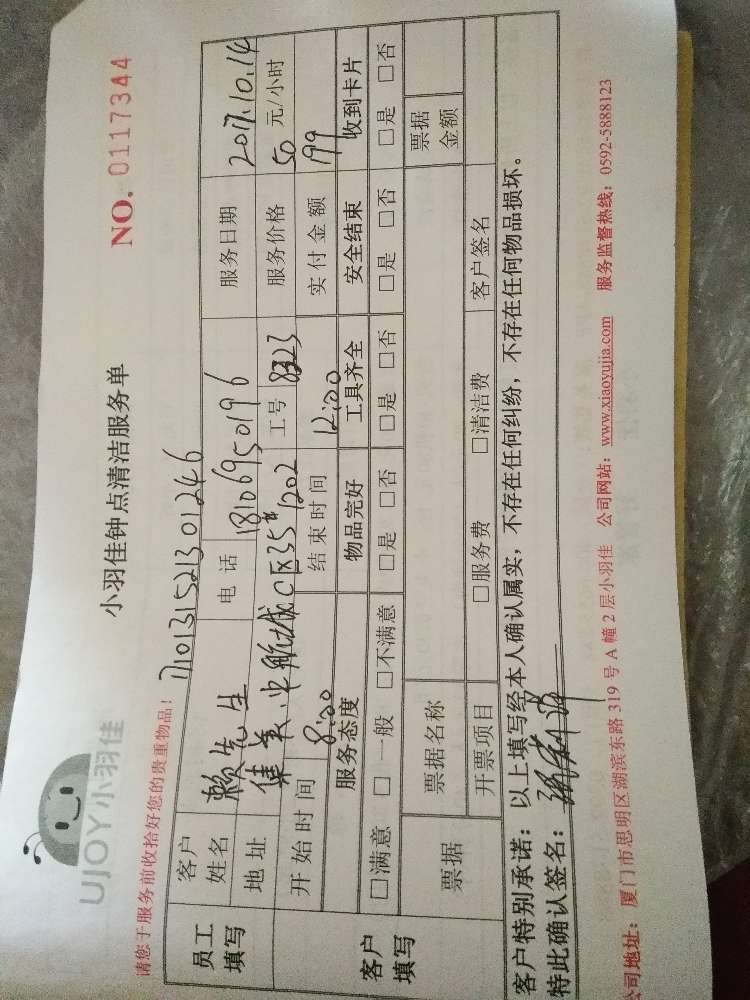 UJOY小羽佳
小羽佳钟点清洁服务单
NO. 0117344
请您于服务前收拾好您的贵重物品！
1710131521301246
员工填写 客户姓名 赖先生 电话 18106950196 服务日期 2017.10.14
地址 集美中航城C区35#1202 工号 8323 服务价格 50 元/小时
开始时间 8:00 结束时间 12:00 实付金额 199
客户填写 服务态度 物品完好 工具齐全 安全结束 收到卡片
□满意 □一般 □不满意 □是 □否 □是 □否 □是 □否 □是 □否
票据 票据名称 票据金额
开票项目 □服务费 □清洁费 客户签名
客户特别承诺：以上填写经本人确认属实，不存在任何纠纷，不存在任何物品损坏。
特此确认签名：
公司地址：厦门市思明区湖滨东路319号A幢2层小羽佳 公司网站：www.xiaoyujia.com 服务监督热线：0592-5888123